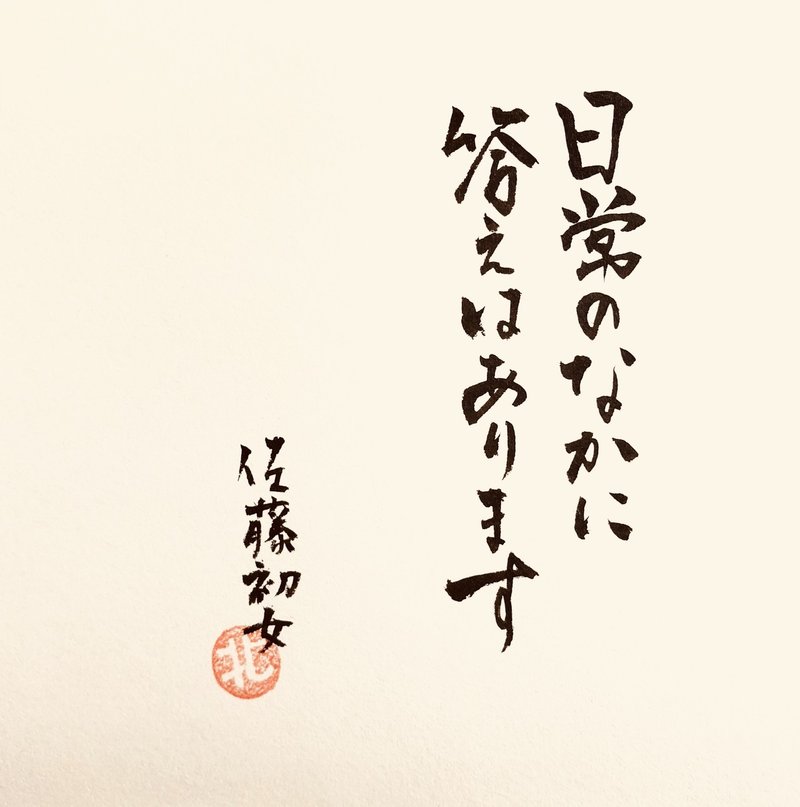 日常のなかに
答えはあります
佐藤初女
北